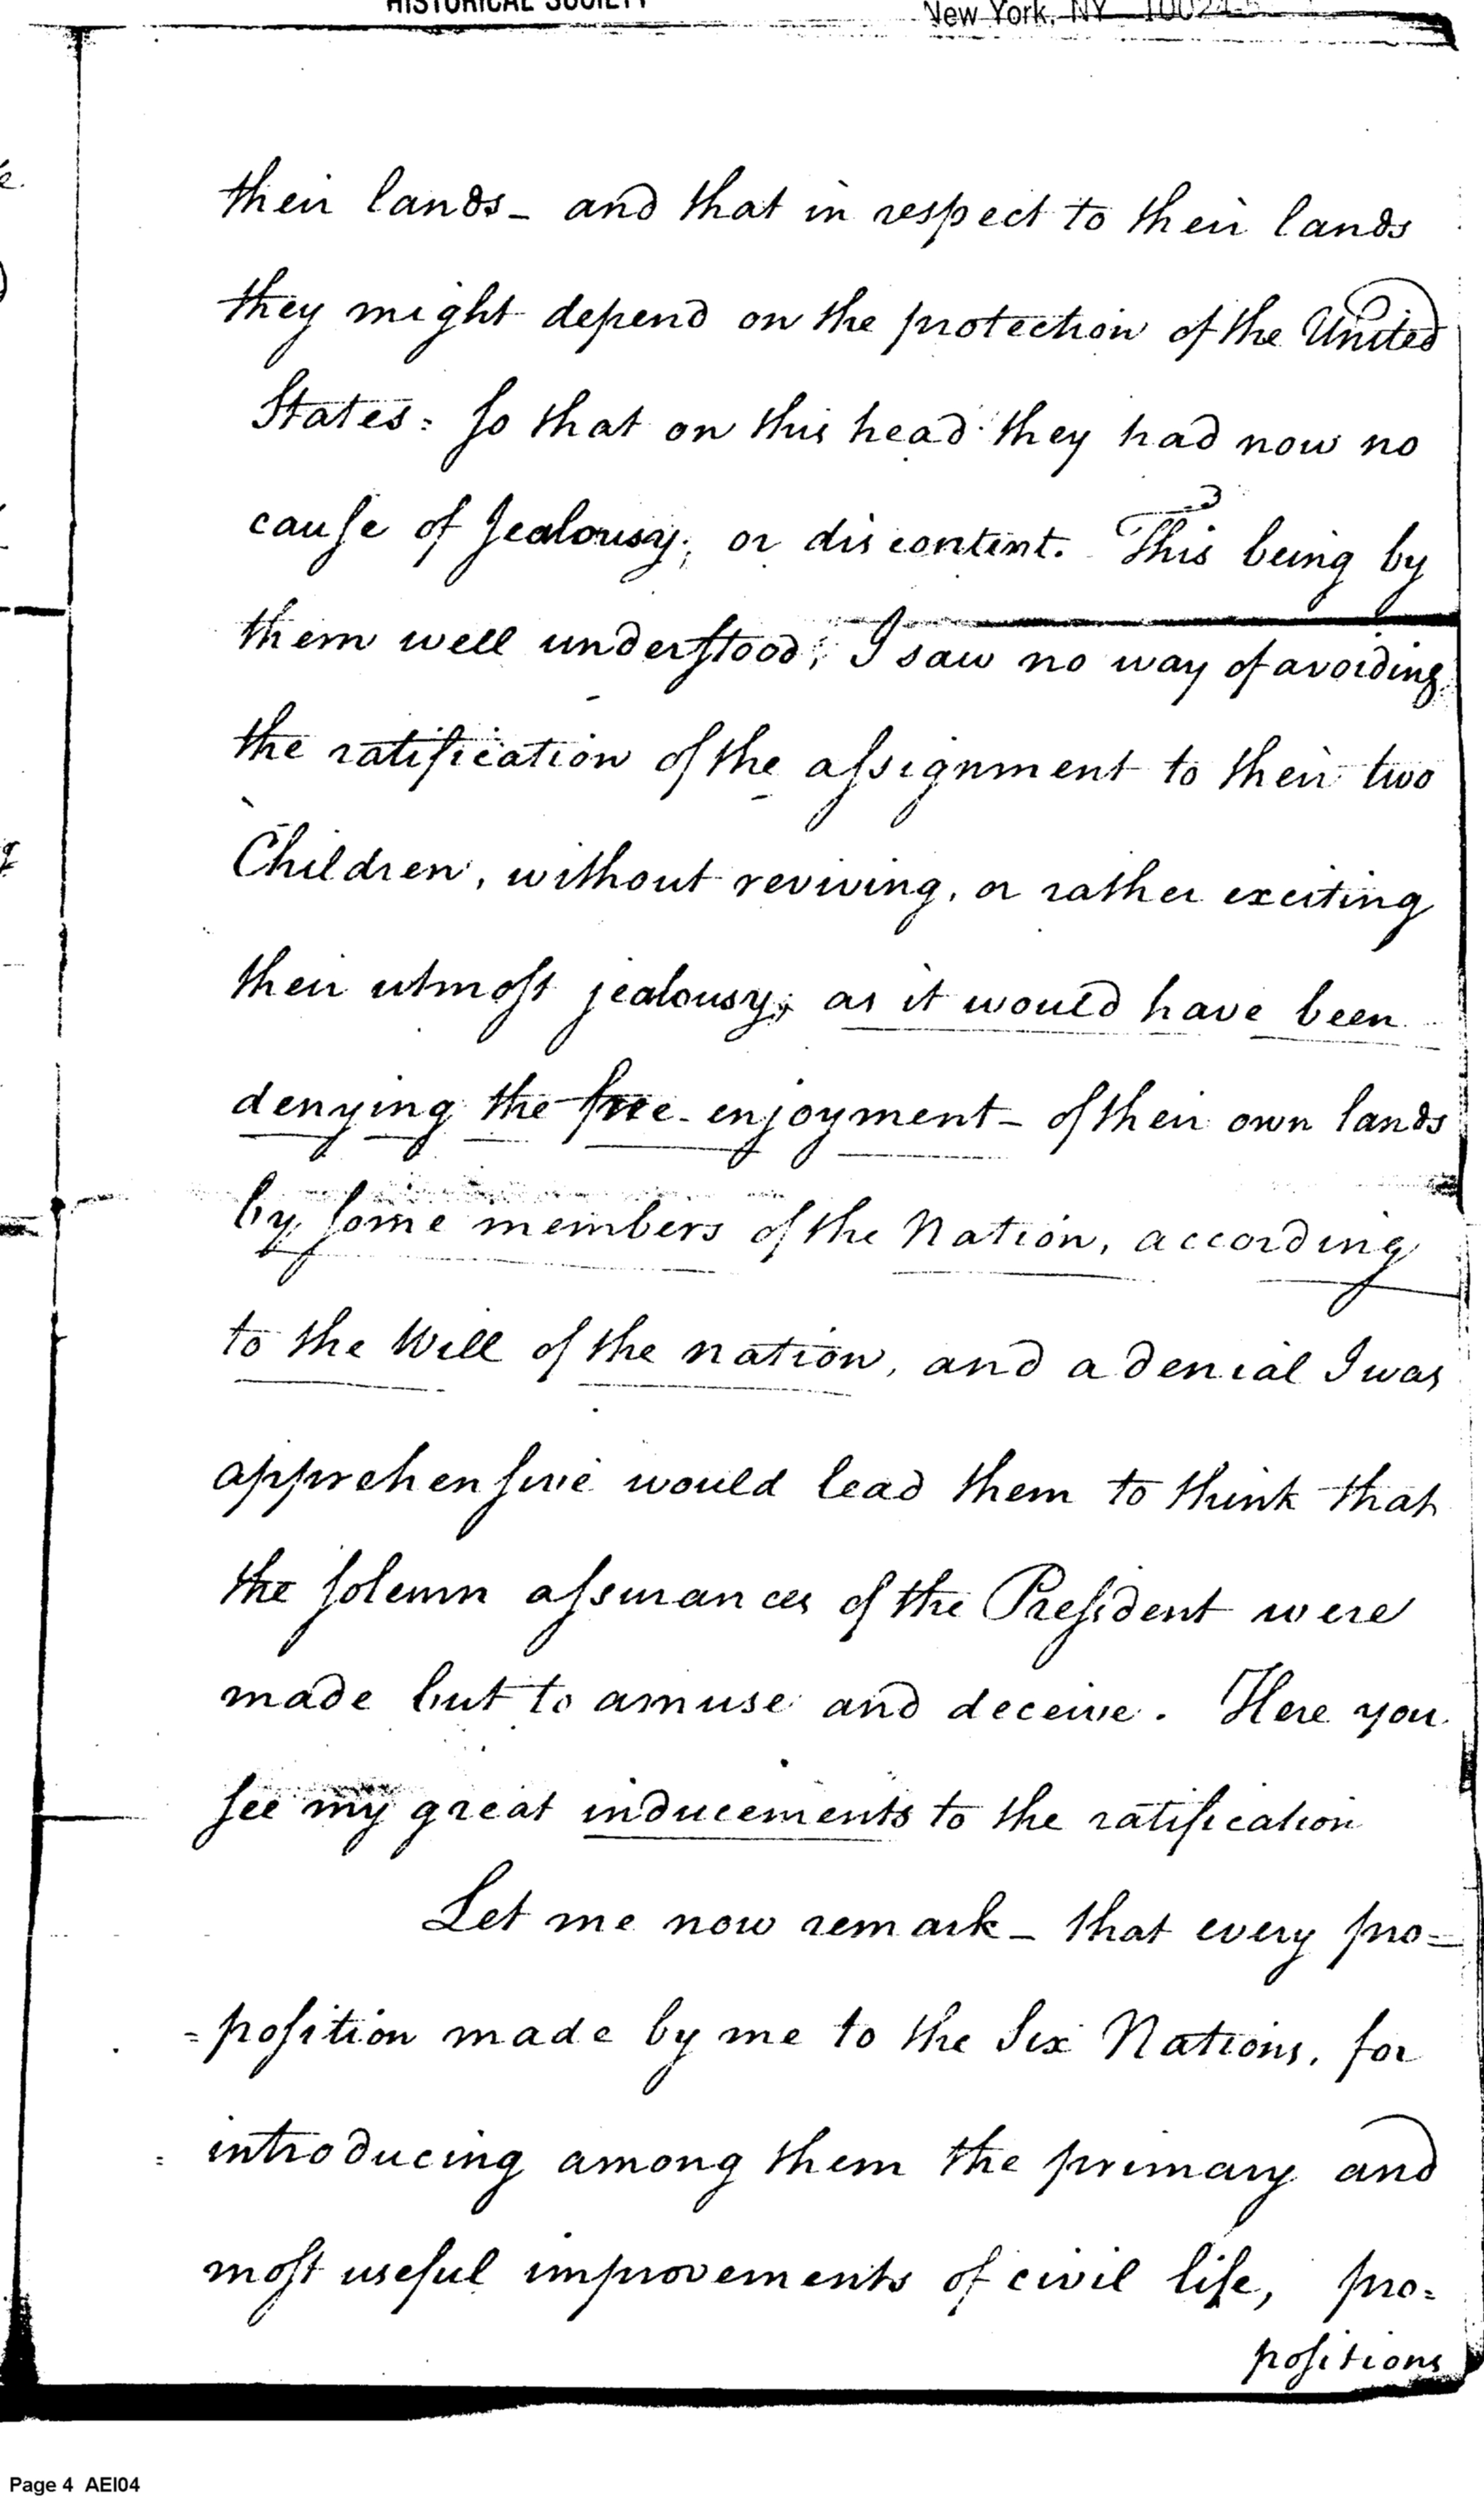 HISTORICAL SOCIETY
New York, NY 10024-5
their lands_ and that in respect to their lands
they might depend on the protection of the United
States: So that on this head they had now no
cause of Jealousy, or discontent. This being by
them well understood; I saw no way of avoiding
the ratification of the assignment to their two
Children, without reviving, or rather exciting
their utmost jealousy; as it would have been
denying the free enjoyment_ of their own lands
by some members of the Nation, according
to the Will of the nation, and a denial I was
apprehensive would lead them to think that
the solemn assurances of the President were
made but to amuse and deceive. Here you
see my great inducements to the ratification
Let me now remark_ that every pro=
=position made by me to the Six Nations, for
introducing among them the primary and
most useful improvements of civil life, pro=
positions
Page 4 AEI04